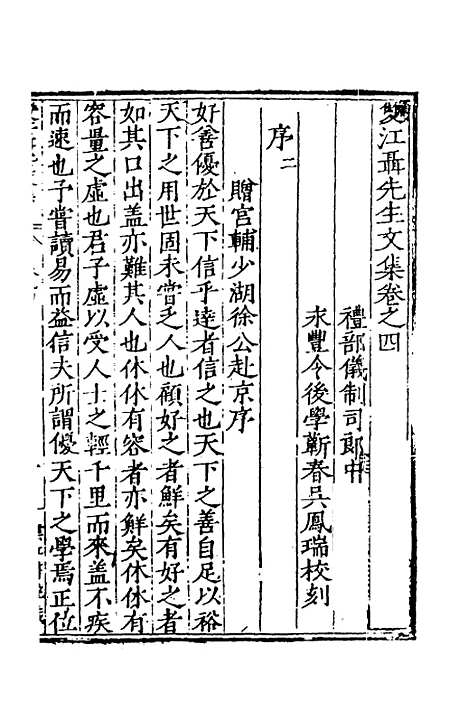 雙江聶先生文集卷之四
禮部儀制司郎中
永豐令後學蘄春吳鳳瑞校刻
序二
贈宮輔少湖徐公赴京序
好善優於天下信乎達者信之也天下之善自足以裕
天下之用世固未嘗乏人也顧好之者鮮矣有好之者
如其口出盖亦難其人也休休有容者亦鮮矣休休有
容量之虛也君子虛以受人士之輕千里而來盖不疾
而速也予嘗讀易而益信夫所謂優天下之學焉正位